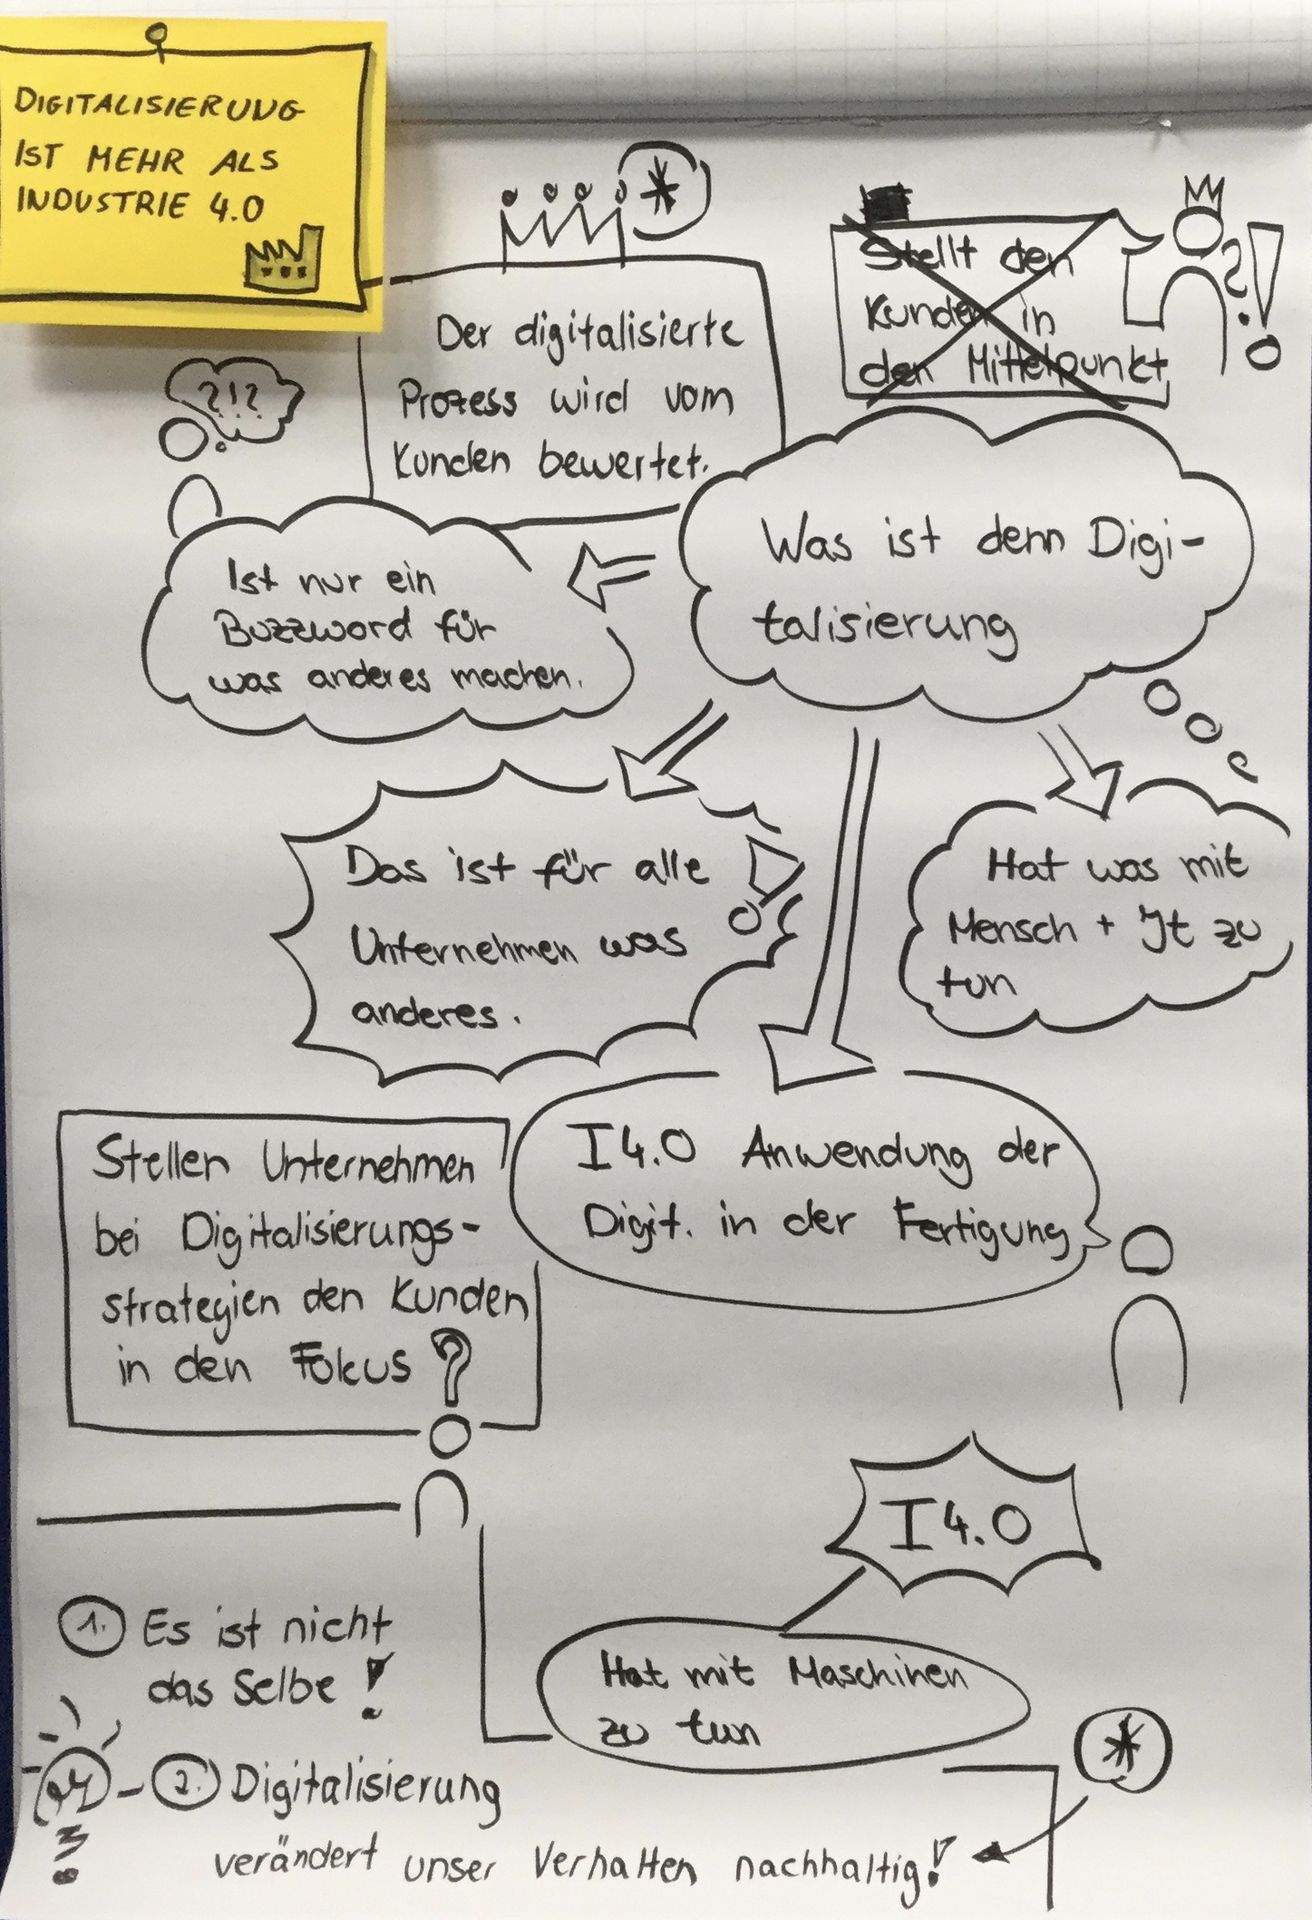 DIGITALISIERUNG
IST MEHR ALS
INDUSTRIE 4.0
*
Der digitalisierte
Prozess wird vom
Kunden bewertet.
Stellt den
Kunden in
den Mittelpunkt
?!
?!?
Was ist denn Digi-
talisierung
Ist nur ein
Buzzword für
was anderes machen.
Das ist für alle
Unternehmen was
anderes.
!
Hat was mit
Mensch + It zu
tun
I 4.0 Anwendung der
Digit. in der Fertigung
Stellen Unternehmen
bei Digitalisierungs-
strategien den Kunden
in den Fokus ?
I 4.0
Hat mit Maschinen
zu tun
1. Es ist nicht
das Selbe !
2. Digitalisierung
verändert unser Verhalten nachhaltig!
*